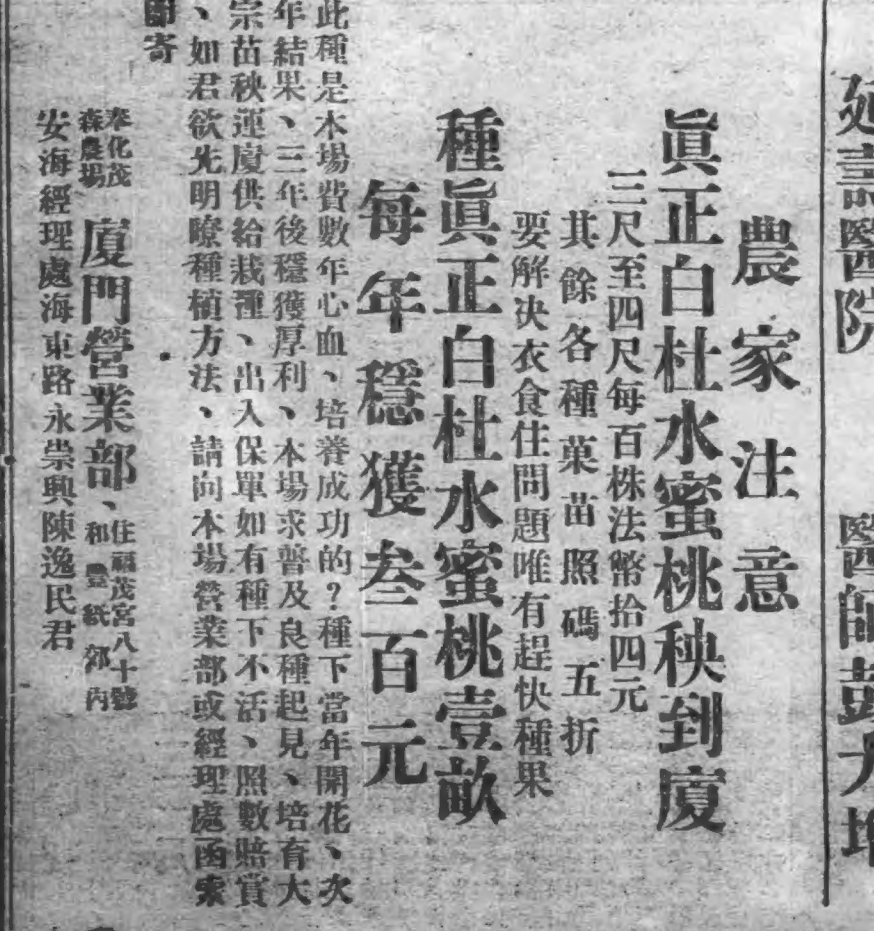 醫院
醫師彭
農家注意
眞正白杜水蜜桃秧到廈
三尺至四尺每百株法幣拾四元
其餘各種菓苗照碼五折
要解決衣食住問題唯有趕快種果
種眞正白杜水蜜桃壹畝
每年穩獲叁百元
此種是本場費數年心血、培養成功的?種下當年開花、次
年結果、三年後穩獲厚利、本場求普及良種起見、培育大
宗苗秧運廈供給栽種、出入保單如有種下不活、照數賠賞
、如君欲先明瞭種植方法、請向本場營業部或經理處函索
卽寄
奉化茂
森農場
廈門營業部、
住福茂宮八十號
和豐紙郊內
安海經理處海東路永崇興陳逸民君